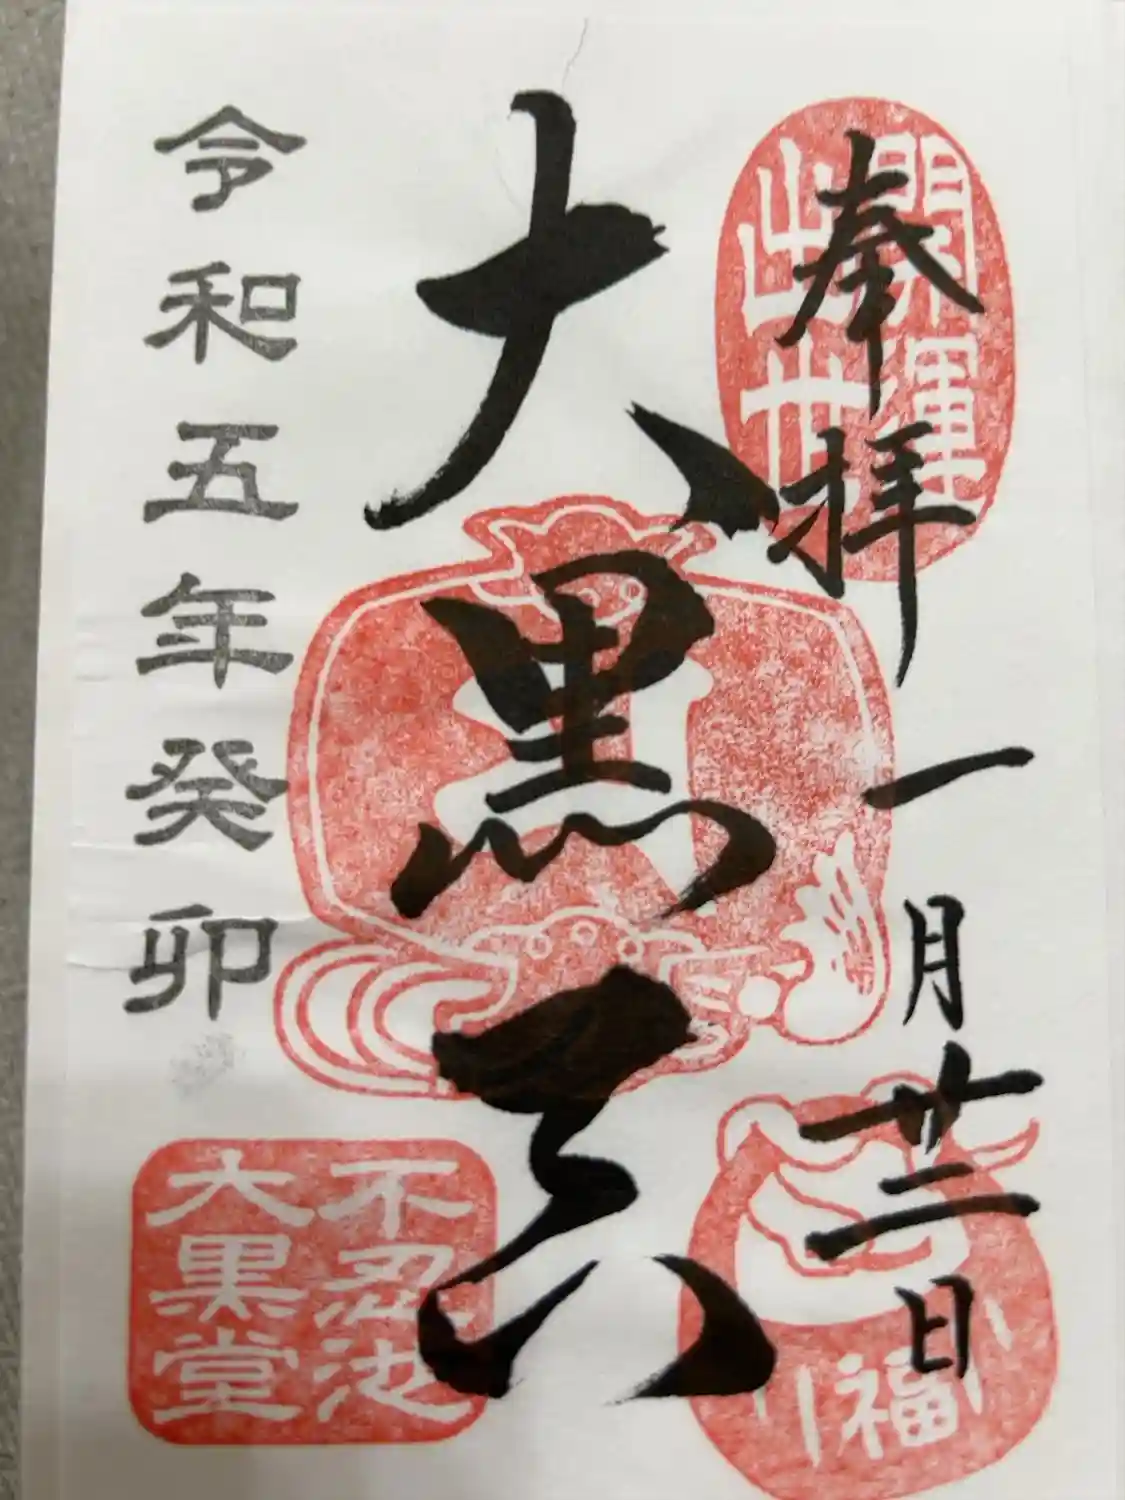 開運
出世
奉拝
一月廿二日
大黒天
令和五年癸卯
不忍池
大黒堂
福